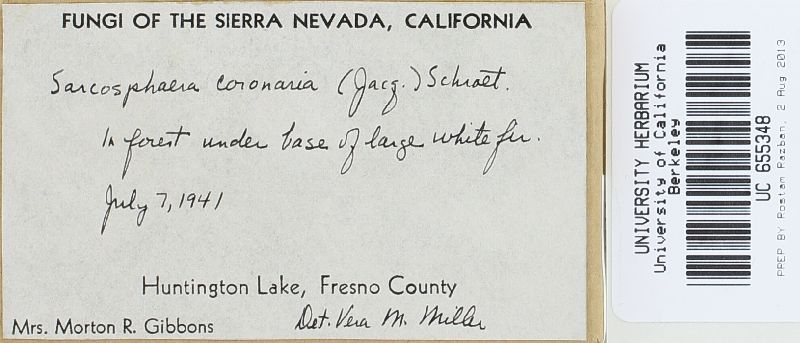 FUNGI OF THE SIERRA NEVADA, CALIFORNIA
Sarcosphaera coronaria (Jacq.) Schroet.
In forest under base of large white fir.
July 7, 1941
Huntington Lake, Fresno County
Mrs. Morton R. Gibbons
Det. Vera M. Miller
UNIVERSITY HERBARIUM
University of California
Berkeley
UC 655348
PREP BY Rostam Razban, 2 Aug 2013